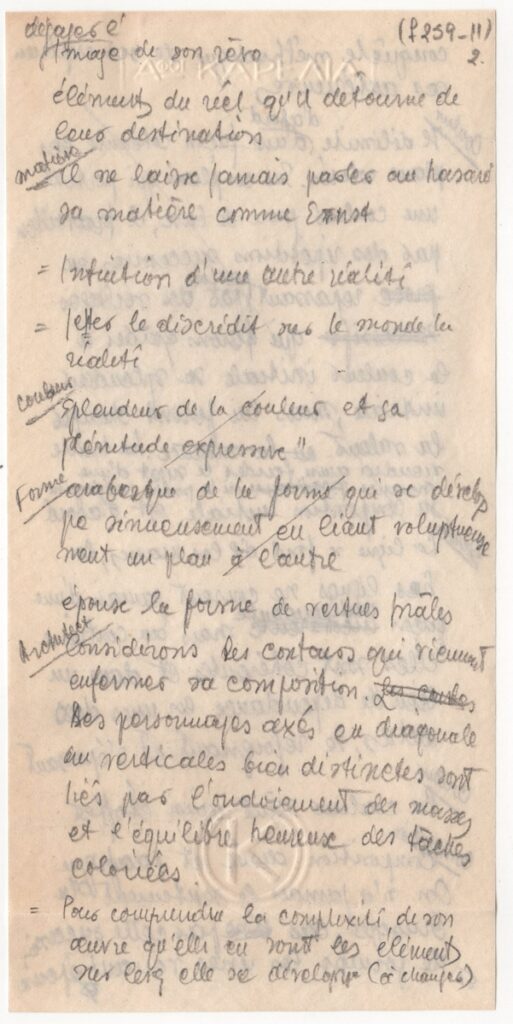 dégager l'
image de son rêve
(f 259-11)
2.
éléments du réel, qu'il détourne de
leur destination
matière
Il ne laisse jamais parler au hasard
sa matière comme Ernst
= Intuition d'une autre réalité
= Jetter le discrédit sur le monde la
réalité
couleur
Splendeur de la couleur, et sa
plénitude expressive"
Forme
arabesque de la forme qui se dévelop
pe sinueusement en liant voluptueuse
ment un plan à l'autre
épouse la forme de vertues
Architect
Considérons les contours qui viennent
enfermer sa composition. Les
Les personnages axés en diagonale
ou verticales bien distinctes sont
liés par l'ondoiement des masses
et l'équilibre heureux des tâches
coloriées
= Pour comprendre la complexité de son
œuvre qu'elle en sont les éléments
sur lesq elle se développe (à changer)
A KAPLAN
K